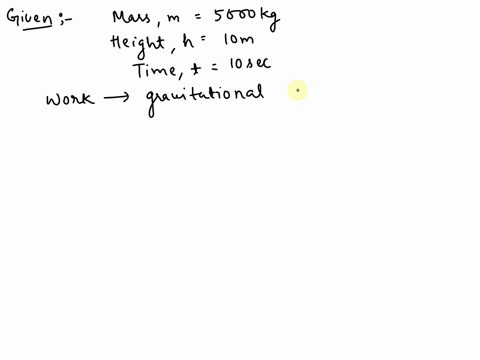 Given :- Mass, m = 5000 kg
Height, h = 10m
Time, t = 10 sec
Work → gravitational